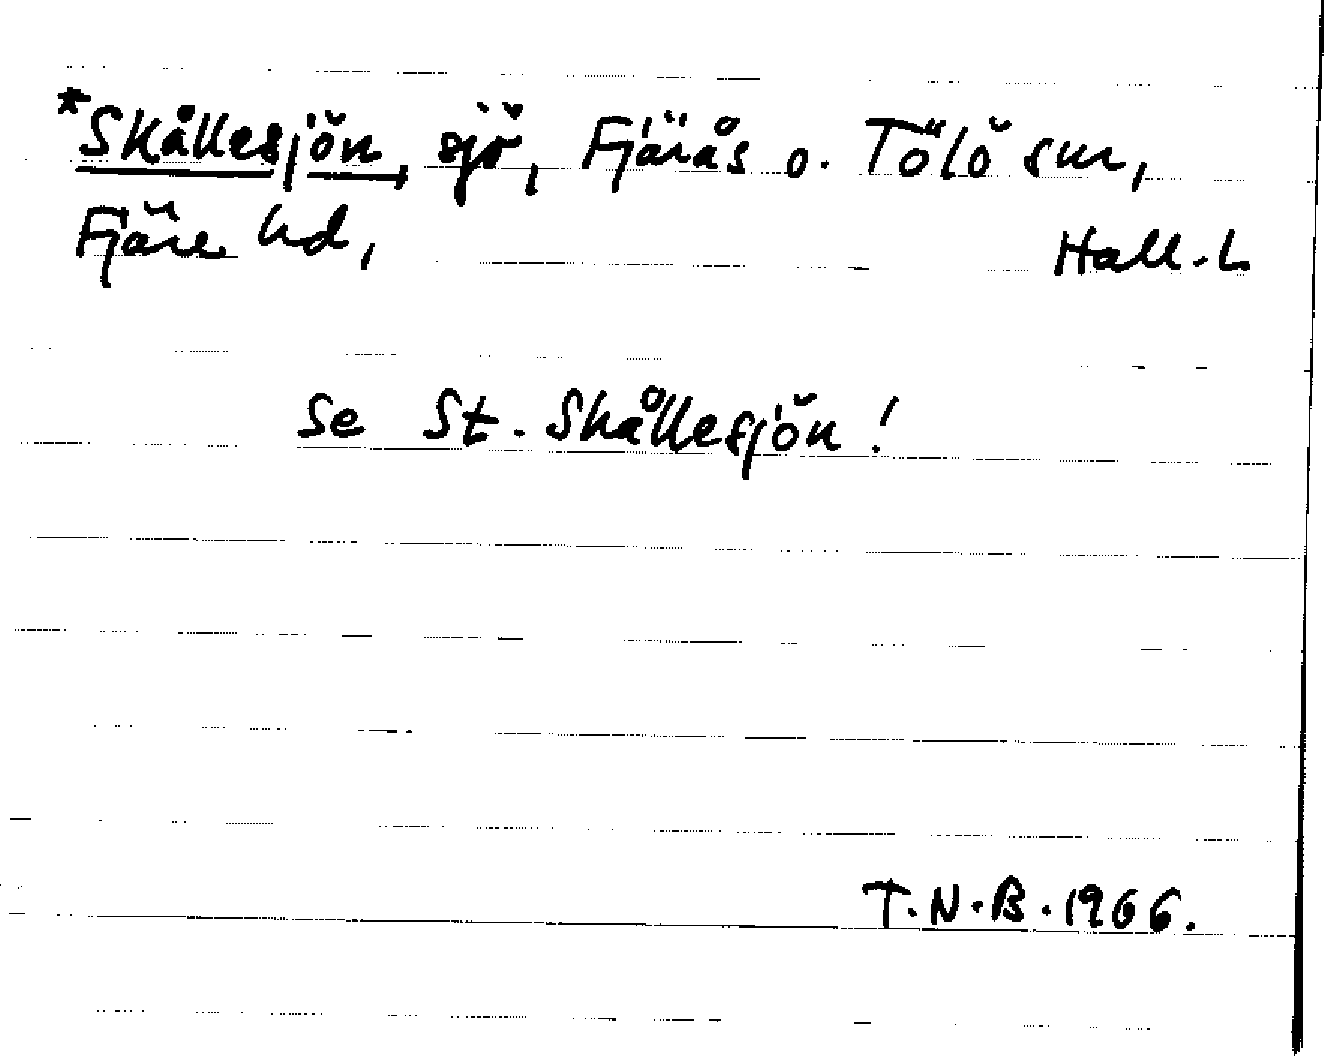 *Skållesjön, sjö, Fjärås o. Tölö snr,
Fjäre hd, Hall. L.
Se St. Skållesjön!
T.N.B. 1966.